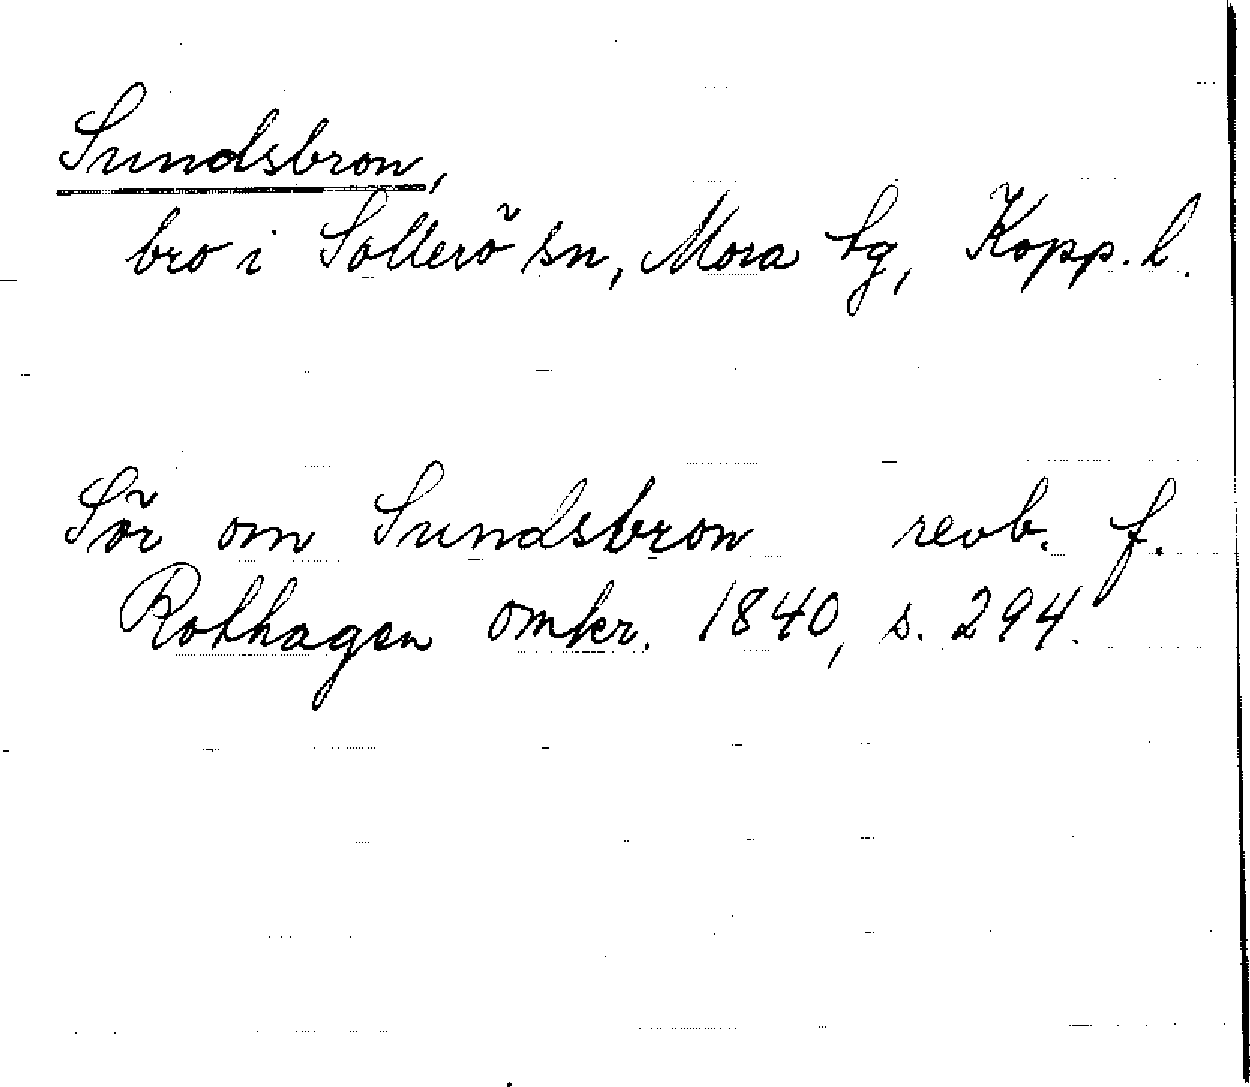 Sundsbron,
bro i Sollerö sn, Mora tg, Kopp. l.
Sör om Sundsbron revb. f.
Rothagen omkr. 1840, s. 294.